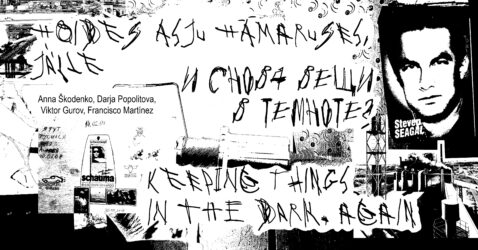 HOIDES ASJU HÄMARUSES,
JÄLLE
И СНОВА ВЕЩИ
В ТЕМНОТЕ?
Anna Škodenko, Darja Popolitova,
Viktor Gurov, Francisco Martínez
Steven
SEAGAL
Я ТУТ
schauma
KEEPING THINGS
IN THE DARK, AGAIN